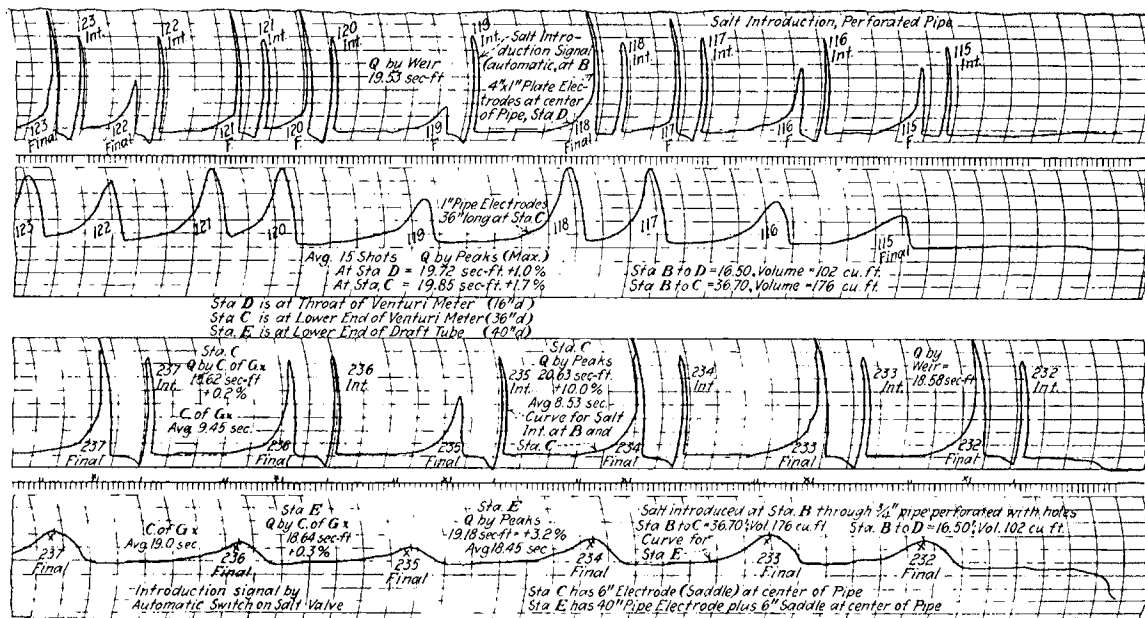 Salt Introduction, Perforated Pipe
123
Int.
122
Int.
121
Int.
120
Int.
119
Int.
Salt Intro-
duction Signal
(automatic, at B
118
Int.
117
Int.
116
Int.
115
Int.
Q by Weir
19.53 sec-ft
4"x1" Plate Elec-
trodes at center
of Pipe, Sta D
123
Final
122
Final
121
F
120
F
119
F
118
Final
117
F
116
F
115
F
123
122
121
120
119
1" Pipe Electrodes
36" long at Sta. C
118
117
116
115
Final
Avg. 15 Shots Q by Peaks (Max.)
At Sta D = 19.72 sec-ft. +1.0%
At Sta, C = 19.85 sec-ft. +1.7%
Sta B to D = 16.50, Volume = 102 cu. ft.
Sta B to C = 36.70, Volume = 176 cu. ft.
Sta D is at Throat of Venturi Meter (16"d)
Sta C is at Lower End of Venturi Meter (36"d)
Sta. E is at Lower End of Draft Tube (40"d)
Sta. C
Q by C. of Gx
sec-ft
+0.2%
C. of Gx
Avg. 9.45 sec.
237
Int.
236
Int.
Sta. C
Q by Peaks
20.63 sec-ft
+10.0%
Avg 8.53 sec.
235
Int.
Curve for Salt
Int. at B and
Sta. C
234
Int
233
Int.
Q by
Weir =
18.58 sec-ft
232
Int
237
Final
236
Final
235
Final
234
Final
233
Final
232
Final
C. of Gx
Avg. 19.0 sec
Sta E
Q by C. of Gx
18.64 sec-ft
+0.3%
Sta E
Q by Peaks
19.18 sec-ft = +3.2%
Avg 18.45 sec
Salt introduced at Sta. B through 3/4" pipe perforated with holes
Sta B to C = 36.70', Vol. 176 cu. ft Sta. B to D = 16.50', Vol. 102 cu. ft.
Curve for
Sta E
237
Final
236
Final
235
Final
234
Final
233
Final
232
Final
Introduction signal by
Automatic Switch on Salt Valve
Sta C has 6" Electrode (Saddle) at center of Pipe
Sta E has 40" Pipe Electrode plus 6" Saddle at center of Pipe